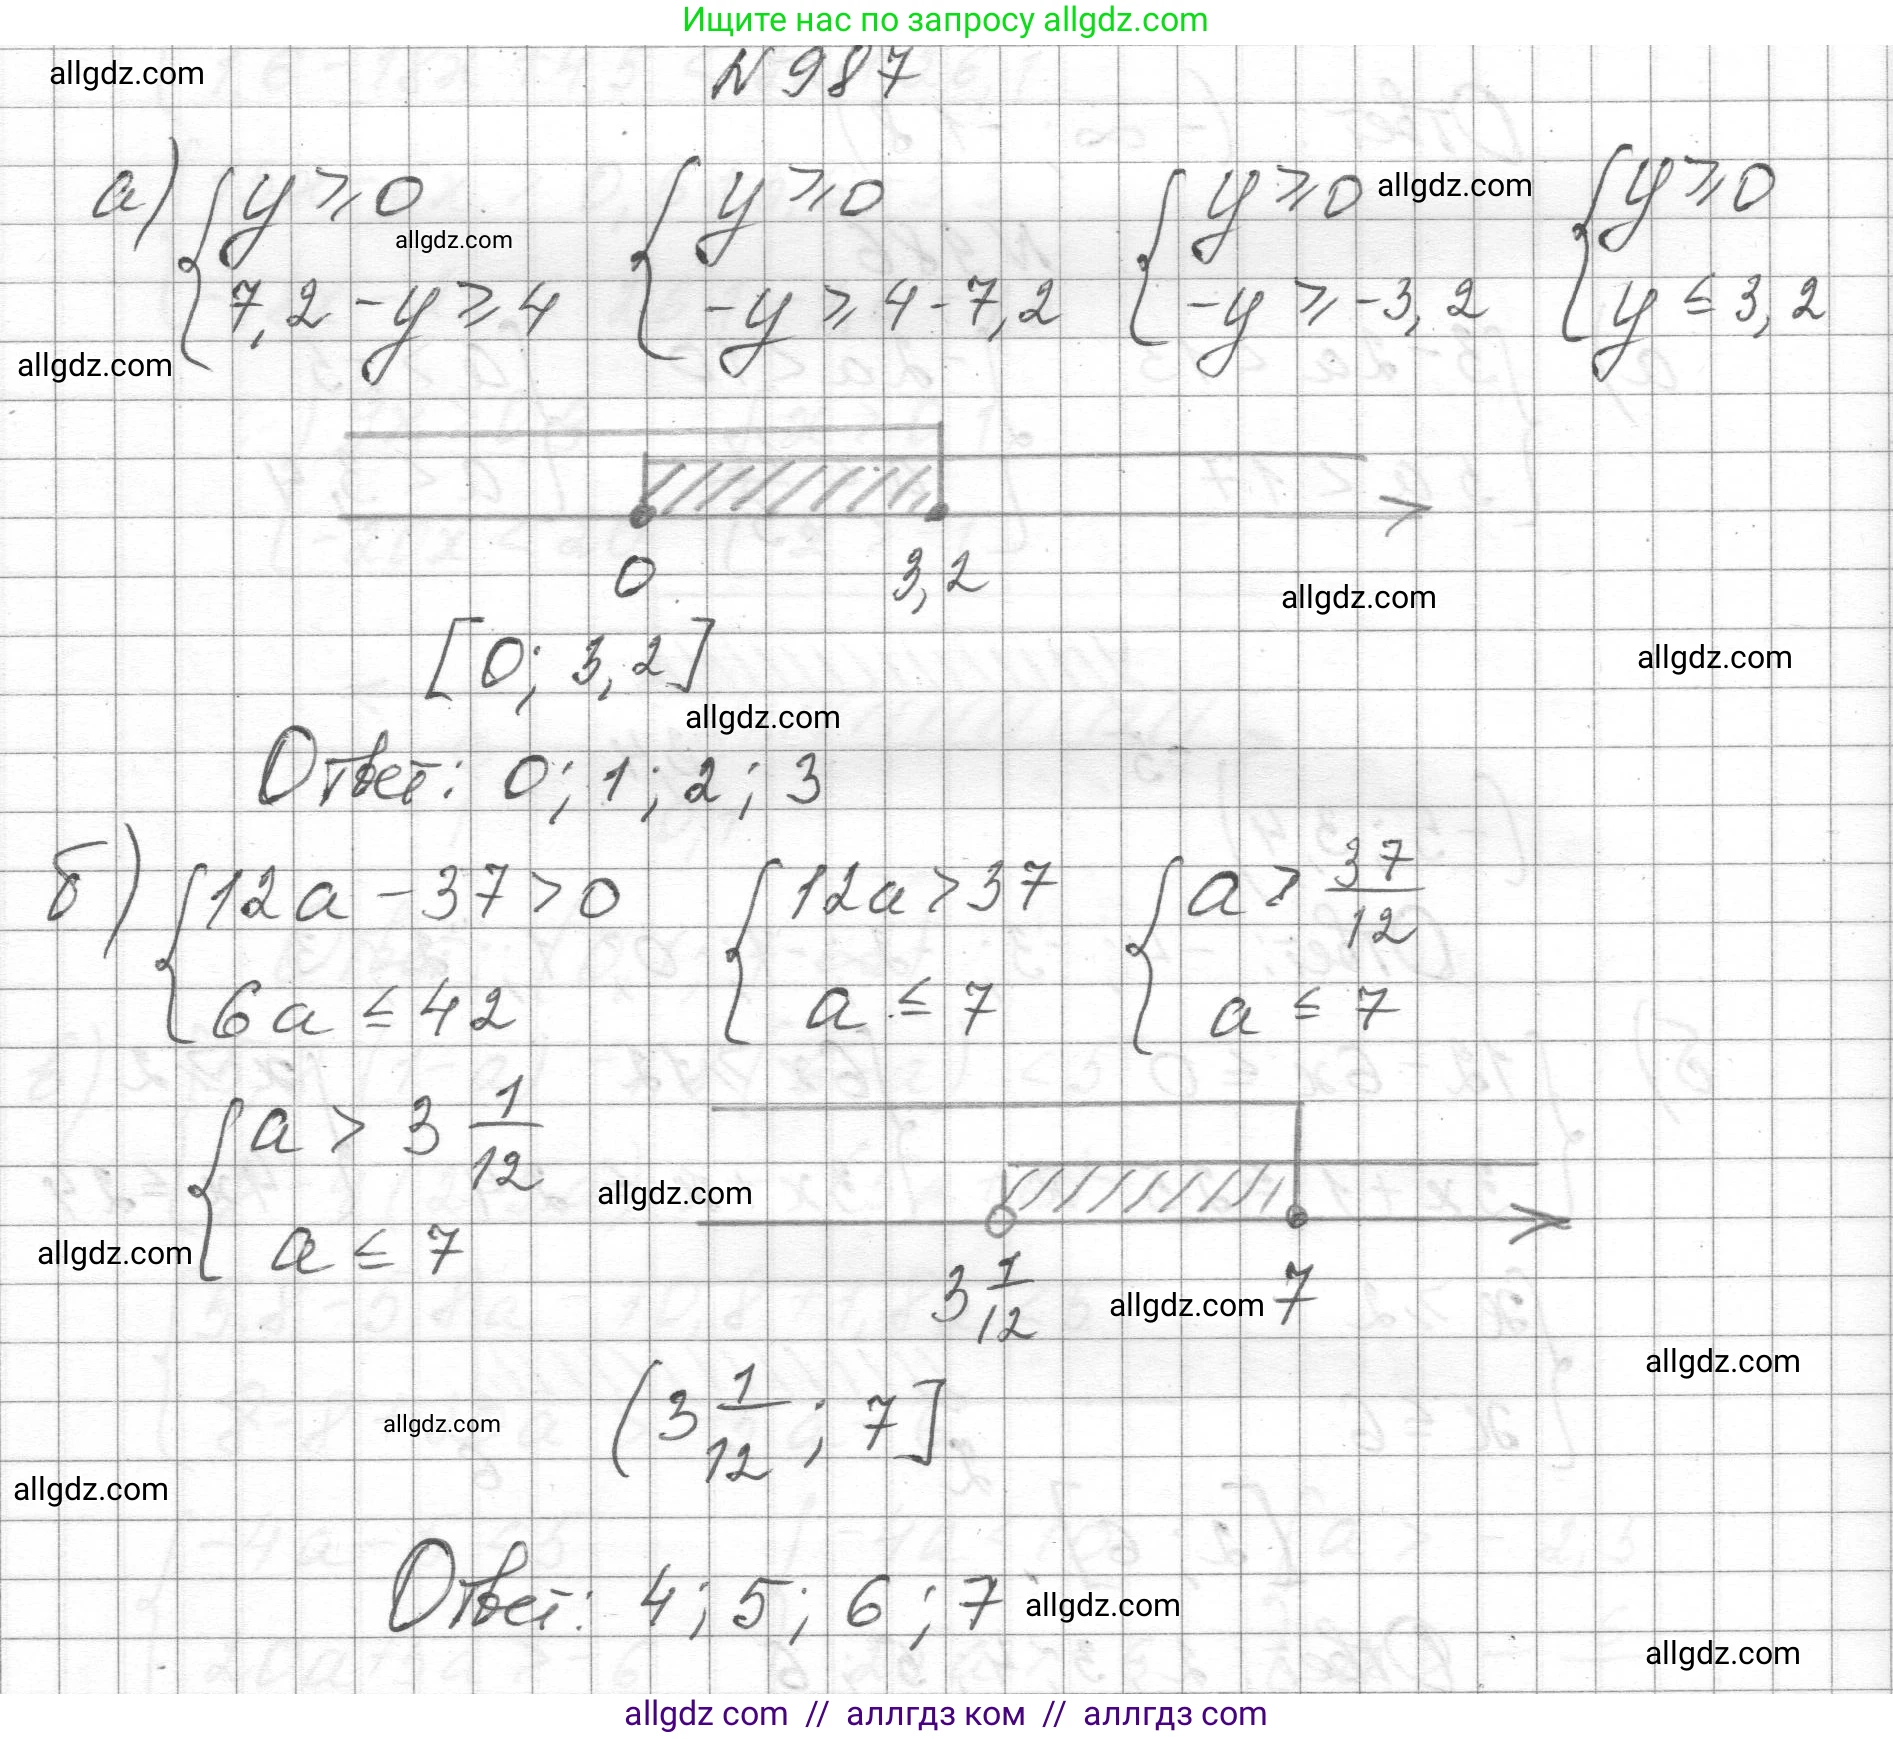 Ищите нас по запросу allgdz.com
allgdz.com
№ 987
а) { y ⩾ 0 { y ⩾ 0 { y ⩾ 0 allgdz.com { y ⩾ 0
allgdz.com
7,2 - y ⩾ 4 -y ⩾ 4 - 7,2 -y ⩾ -3,2 y ≤ 3,2
allgdz.com
0 3,2
allgdz.com
[0; 3,2]
allgdz.com
allgdz.com
Ответ: 0; 1; 2; 3
б) { 12a - 37 > 0 { 12a > 37 { a > 37/12
6a ≤ 42 a ≤ 7 a ≤ 7
{ a > 3 1/12
allgdz.com
allgdz.com a ≤ 7
3 1/12 allgdz.com 7
allgdz.com
(3 1/12; 7]
allgdz.com
allgdz.com
Ответ: 4; 5; 6; 7 allgdz.com
allgdz.com
allgdz com // аллгдз ком // аллгдз com